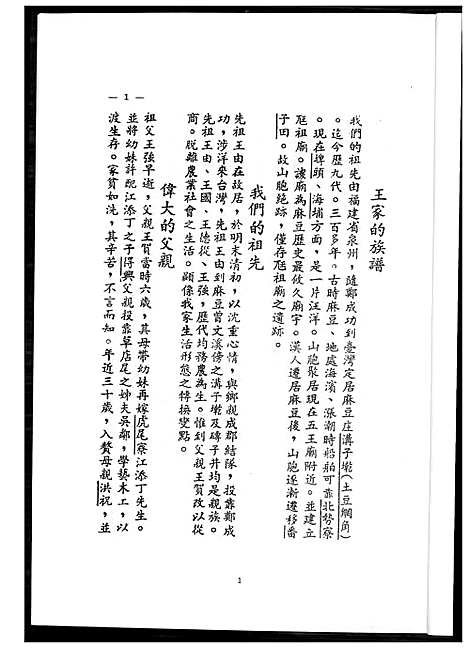 王家的族譜
我們的祖先由福建省泉州，隨鄭成功到臺灣定居麻豆庄溝子墘（土豆網角）
。迄今歷九代。三百多年。古時麻豆、地處海濱、漲潮時船舶可靠北勢寮
。現在埤頭、海埔方面，是一片汪洋。山胞聚居現在五王廟附近。並建立
尪祖廟。該廟為麻豆歷史最攸久廟宇。漢人遷居麻豆後，山胞逐漸遷移番
子田。故山胞絕跡，僅存尪祖廟之遺跡。
我們的祖先
先祖王由在故居，於明末清初，以沈重心情，與鄉親成郡結隊，投靠鄭成
功，涉洋來台灣，先祖王由到麻豆曾文溪傍之溝子墘及碑子井均是親族。
先祖王由、王國、王德從、王強，歷代均務農為生。惟到父親王賀改以從
商。脫離農業社會之生活。顯係我家生活形態之轉換變點。
偉大的父親
祖父王強早逝，父親王賀當時六歲，其母帶幼妹再嫁虎尾寮江添丁先生。
並將幼妹許配江添丁之子得興父親投靠草店尾之姊夫吳鄰，學藝木工，以
渡生存。家貧如洗，其辛苦，不言而知。年近三十歲，入贅母親洪祝，並
— 1 —
1